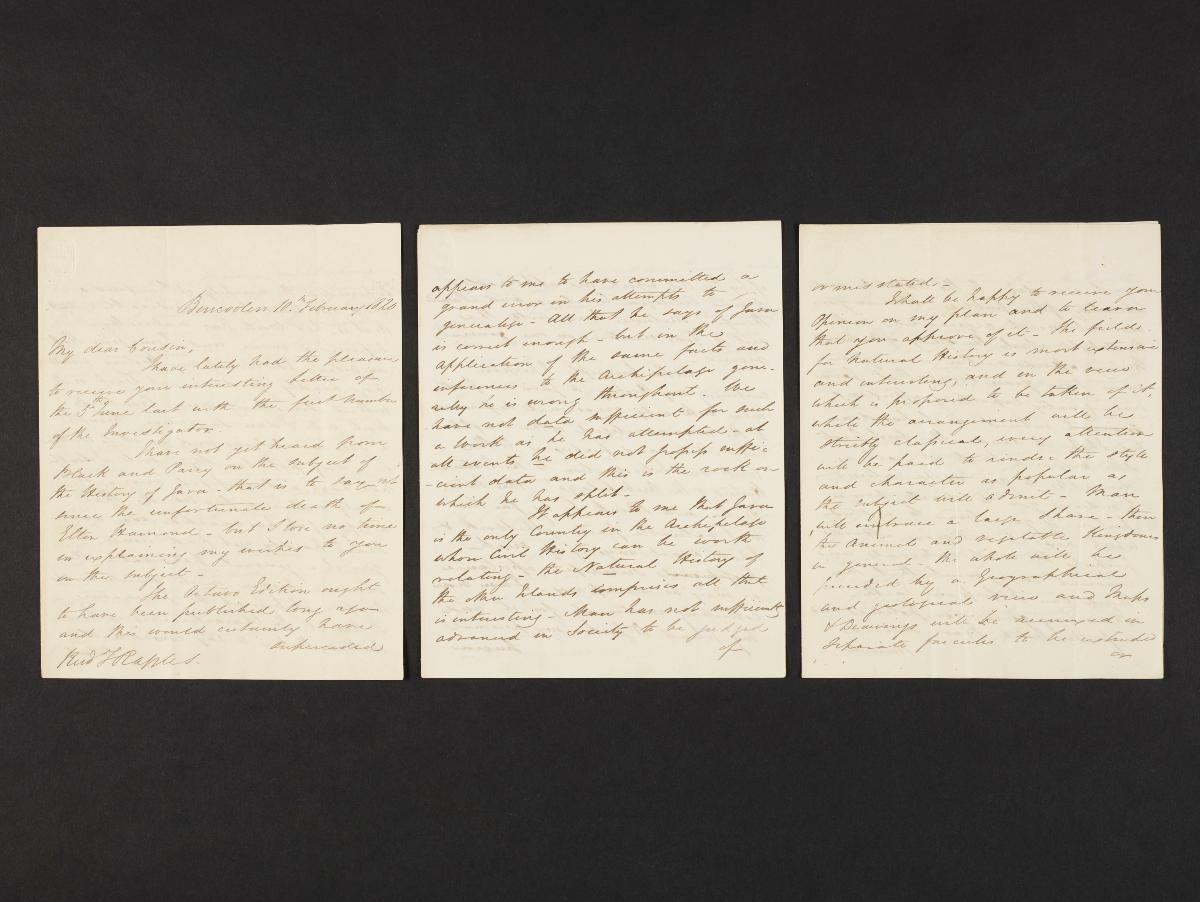 Bencoolen 10th February 1820
My dear Cousin,
I have lately had the pleasure
to receive your interesting Letter of
the 5th June last with the first number
of the Investigator.
I have not yet heard from
Black and Parry on the subject of
the History of Java - that is to say not
since the unfortunate death of
Elton Hamond - but I lose no time
in explaining my wishes to you
on the subject -
The Octavo Edition ought
to have been published long ago
and this would certainly have
superceded
Revd T Raffles.
appears to me to have committed a
grand error in his attempts to
generalize - All that he says of Java
is correct enough - but in the
application of the same facts and
inferences to the Archipelago gene-
rally he is wrong throughout. We
have not data sufficient for such
a work as he has attempted - at
all events he did not possess suffic
-cient data and this is the rock on
which he has split -
It appears to me that Java
is the only Country in the Archipelago
whose Civil History can be worth
relating - the Natural History of
the other Islands comprises all that
is interesting - Man has not sufficiently
advanced in Society to be judged
of
or misstated. -
I shall be happy to receive your
Opinion on my plan and to learn
that you approve of it - The field
for Natural History is most extensive
and interesting, and in the view
which is proposed to be taken of it,
while the arrangement will be
strictly classical, every attention
will be paid to render the style
and character as popular as
the subject will admit - Man
will embrace a large share - then
the Animal and vegetable Kingdoms
in general - the whole will be
preceded by a Geographical
and geological view and Maps
& Drawings will be arranged in
separate fasciculi to be extended
or